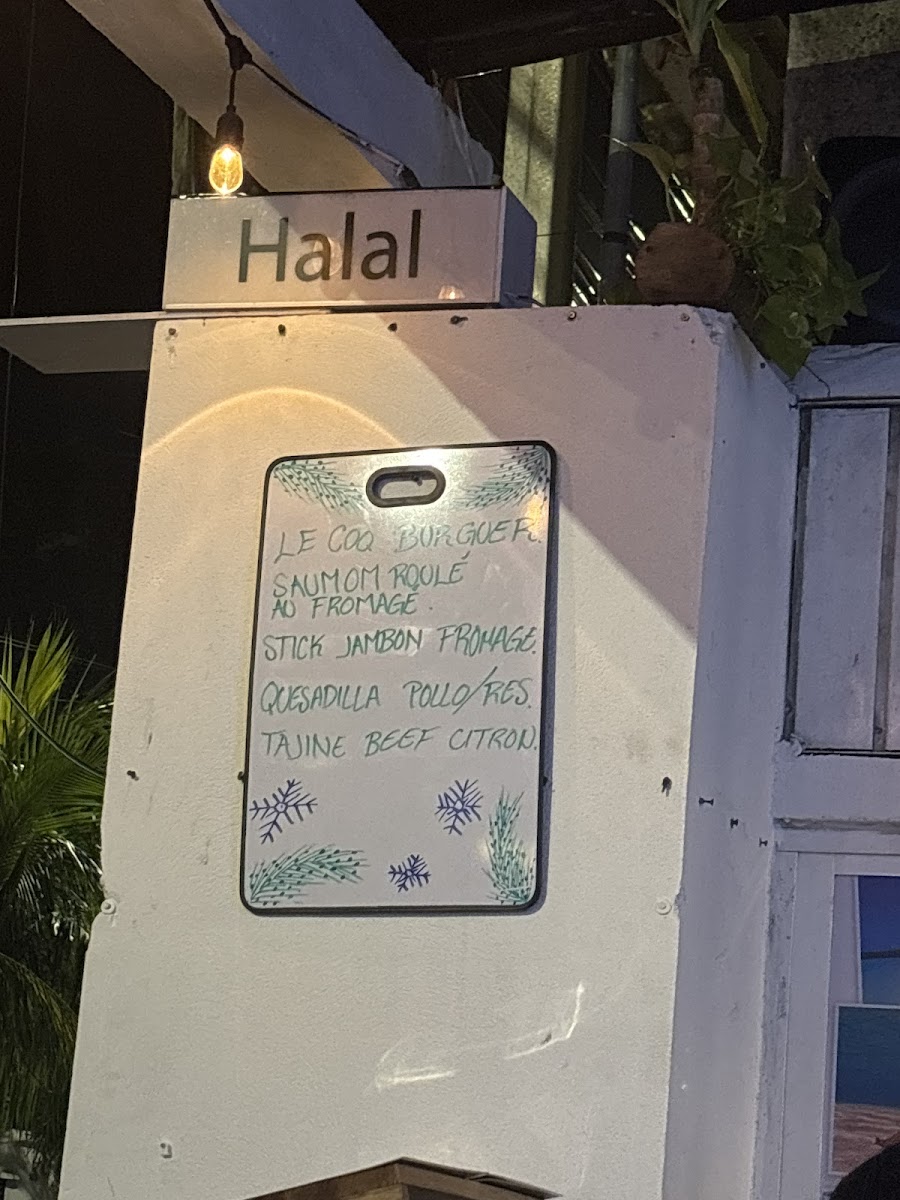 Halal
LE COQ BURGUER.
SAUMOM ROULÉ
AU FROMAGE.
STICK JAMBON FROMAGE.
QUESADILLA POLLO/RES.
TAJINE BEEF CITRON.